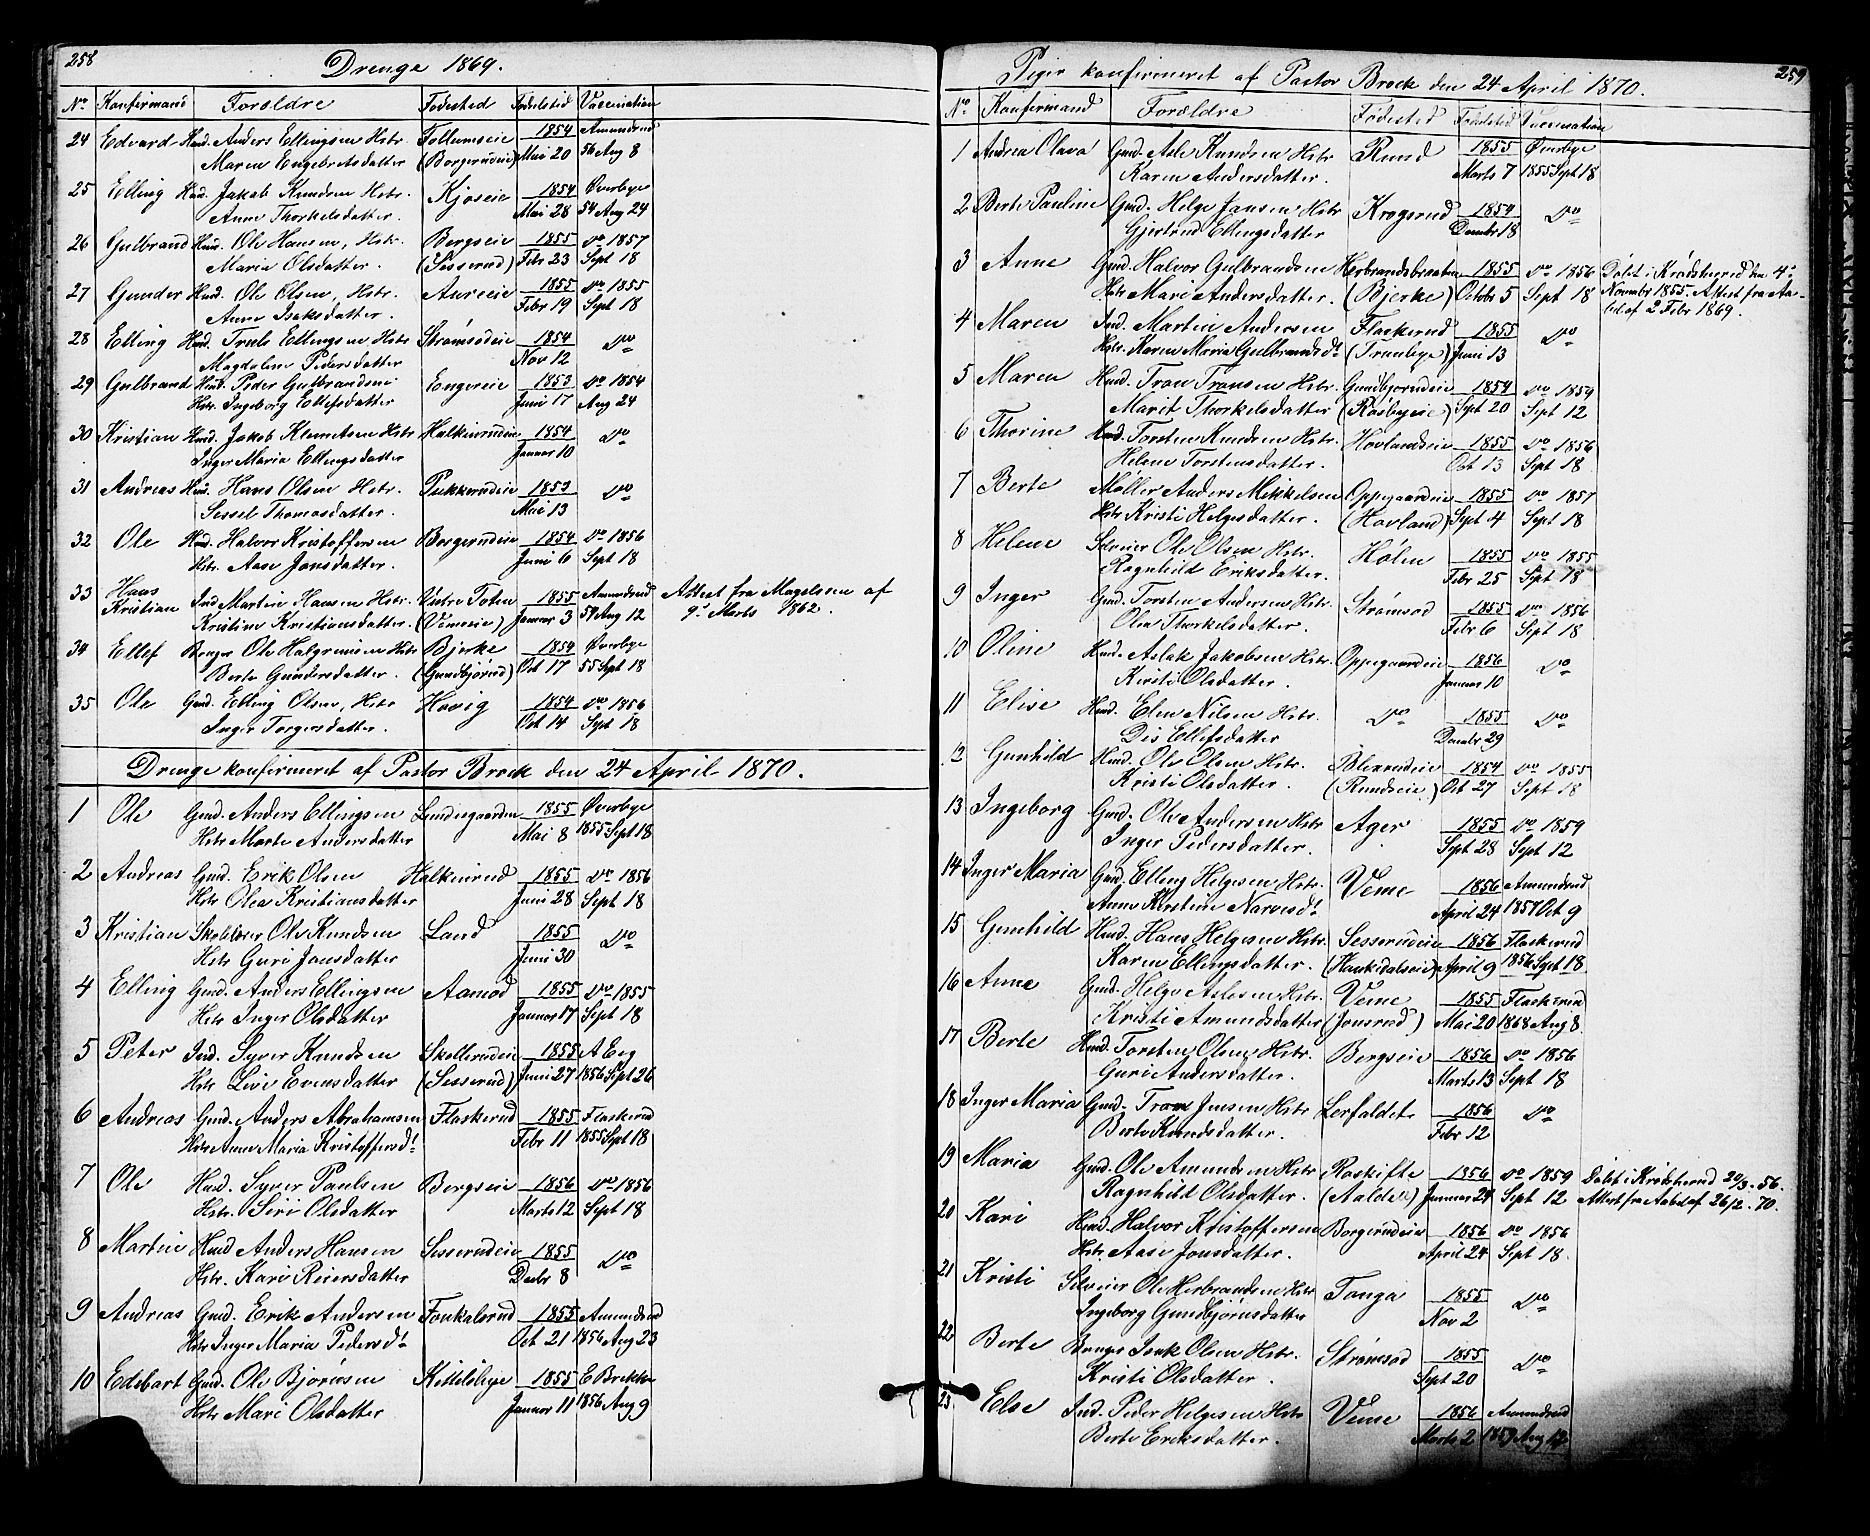 258
Drenge 1869.
No Konfirmand Forældre Fødested Fødelstid Vaccination
24 Edvard Husd. Anders Ellingsen Hstr. Follumseie 1854 Amundrud
Maren Engebretsdatter (Borgerudeie) Mai 20 56 Aug 8
25 Elling Husd. Jakob Knudsen Hstr. Kjøseie 1854 Øverbye
Anne Thorkelsdatter. Mai 28 54 Aug 24
26 Gulbrand Husd. Ole Hansen, Hstr. Bergseie 1855 do 1857
Maria Olsdatter. (Sesserud) Febr 23 Sept 18
27 Gunder Husd. Ole Olsen, Hstr. Aureeie 1855 do 1855
Anne Isaksdatter. Febr 19 Sept 18
28 Elling Husd. Truls Ellingsen Hstr Strømsødeie 1854 do
Magdelene Pedersdatter Nov 12
29 Gulbrand Husd. Peder Gulbrandsen Engereie 1853 do 1854
Hstr. Ingeborg Ellefsdatter Juni 17 Aug 24
30 Kristian Husd. Jakob Klemetsen Hstr Halkinrudeie 1854 do
Inger Maria Ellingsdatter Januar 10
31 Andreas Husd. Hans Olsen Hstr. Pukkerudeie 1853 do
Sessel Thomasdatter. Mai 13
32 Ole Husd. Halvor Kristoffersen Borgerudeie 1854 do 1856
Hstr. Aase Jonsdatter. Juni 6 Sept 18
33 Hans Kristian Ind Martin Hansen Hstr. Vestre Toten 1855 Amundrud Attest fra Magelssen af
Kristine Kristiansdatter. (Vemeeie) Januar 3 59 Aug 12 9de Marts 1862.
34 Ellef Bruger Ole Halgrimsen Hstr Bjerke 1854 Øverbye
Berte Gundersdatter. (Gundbjørud) Oct 17 55 Sept 18
35 Ole Gmd. Elling Olsen, Hstr Hovig 1854 do 1856
Inger Torgersdatter. Oct 14 Sept 18
Drenge konfirmeret af Pastor Brock den 24 April 1870.
1 Ole Gmd. Anders Ellingsen Lundesgaarden 1855 Øverbye
Hstr Marte Andersdatter Mai 8 1855 Sept 18
2 Andreas Gmd. Erik Olsen Halkinrud 1855 do 1856
Hstr Olea Kristiansdatter Juni 28 Sept 18
3 Kristian Skolelærer Ole Knudsen Land 1855 do
Hstr Guri Jonsdatter Juni 30
4 Elling Gmd. Anders Ellingsen Aamod 1855 do 1855
Hstr Inger Olsdatter Januar 17 Sept 18
5 Peter Ind. Syver Knudsen Skollerudeie 1855 A Eeg
Hstr Live Evensdatter (Sesserud) Juni 27 1856 Sept 26
6 Andreas Gmd. Anders Abrahamsen Flaskerud 1855 Flaskerud
Hstr Anne Maria Kristoffersdr Febr 11 1855 Sept 18
7 Ole Husd. Syver Paulsen Bergseie 1856 do 1856
Hstr. Siri Olsdatter Marts 12 Sept 18
8 Martin Husd Anders Hansen Sesserudeie 1855 do
Hstr. Kari Reiersdatter Decbr 8
9 Andreas Gmd. Erik Andersen Fonkalsrud 1855 Amundrud
Hstr Inger Maria Pedersdr Oct 21 1856 Aug 23
10 Edebart Gmd. Ole Bjørnsen Kittelsbye 1855 E Brekke
Hstr Mari Olsdatter Januar 11 1856 Aug 9
259
Piger konfirmeret af Pastor Brock den 24 April 1870.
No Konfirmand Forældre Fødested Fødelstid Vaccination
1 Andrea Olava Gmd. Asle Knudsen Hstr Rund 1855 Øverbye
Karen Andersdatter. Marts 7 1855 Sept 18
2 Berte Pauline Gmd. Helge Jansen Hstr Krogsrud 1854 do
Gjertrud Ellingsdatter Decembr 18
3 Anne Gmd. Halvor Gulbrandsen Herbrandsbraaten 1855 do 1856 Døbt i Krødsherred den 4de
Hstr Mari Andersdatter. (Bjerke) Octobr 5 Sept 18 Novembr 1855. Attest fra Aa-
bel af 2 Febr 1869.
4 Maren Ind. Martin Andersen Flaskerud 1855 do
Hstr. Karen Maria Gulbrandsdr (Tranbye) Juni 13
5 Maren Husd. Tron Tronsen Hstr. Gundbjørudeie 1854 do 1859
Marit Thorkelsdatter (Røsbyeie) Sept 20 Sept 12
6 Thorine Husd. Torsten Knudsen Hstr. Hovlandseie 1855 do 1856
Helene Torstensdatter. Oct 13 Sept 18
7 Berte Møller Anders Mikkelsen Oppegaardeie 1855 do 1857
Hstr Kristi Helgesdatter. (Hovland) Sept 4 Sept 18
8 Helene Selveier Ole Olsen Hstr. Hølen 1855 do 1855
Ragnhild Eriksdatter. Febr 25 Sept 18
9 Inger Gmd. Torsten Andersen Hstr. Strømsød 1855 do 1856
Olea Thorkelsdatter. Febr 6 Sept 18
10 Oline Husd. Aslak Jakobsen Hstr. Oppegaardeie 1856 do
Kirsti Olsdatter. Januar 10
11 Elise Husd. Elen Nilsen Hstr. do 1855 do
Dis Ellefsdatter Decembr 29
12 Gunhild Husd. Ole Olsen Hstr. Blexrudeie 1854 do 1855
Kristi Olsdatter. (Rundseie) Oct 27 Sept 18
13 Ingeborg Gmd. Ole Andersen Hstr Ager 1855 do 1859
Inger Pedersdatter. Sept 28 Sept 12
14 Inger Maria Gmd. Elling Helgesen Hstr. Veme 1856 Amundrud
Anne Kirstine Narvesdr April 24 1857 Oct 9
15 Gunhild Husd. Hans Helgesen Hstr. Sesserudeie 1856 Flaskerud
Karen Ellingsdatter. (Haukedalseie) April 9 1856 Sept 18
16 Anne Gmd. Helge Aslesen Hstr. Veme 1855 Flaskerud
Kristi Amundsdatter (Jonsrud) Mai 20 1868 Aug 8
17 Berte Husd. Torsten Olsen Hstr. Bergseie 1856 do 1856
Guri Andersdatter. Marts 13 Sept 18
18 Inger Maria Gmd. Tron Jensen Hstr Lerfaldet 1856 do
Berte Knudsdatter. Febr 12
19 Maria Gmd. Ole Amundsen Hstr Roskifte 1856 do 1859 Døbt i Krødsherred 20/3. 56.
Ragnhild Olsdatter. (Aalde) Januar 24 Sept 12 Attest fra Aabel af 26/2. 70.
20 Kari Husd. Halvor Kristoffersen Borgerudeie 1856 do 1856
Hstr. Aase Jonsdatter. April 24 Sept 18
21 Kristi Selveier Ole Herbrandsen Hstr Tonga 1855 do
Ingeborg Gundbjørnsdatter Nov 2
22 Berte Bruger Isak Olsen Hstr. Strømsød 1855 do
Kristi Olsdatter. Sept 20
23 Else Ind. Peder Helgesen Hstr Veme 1856 Amundrud
Berte Eriksdatter. Marts 2 1859 Aug 12